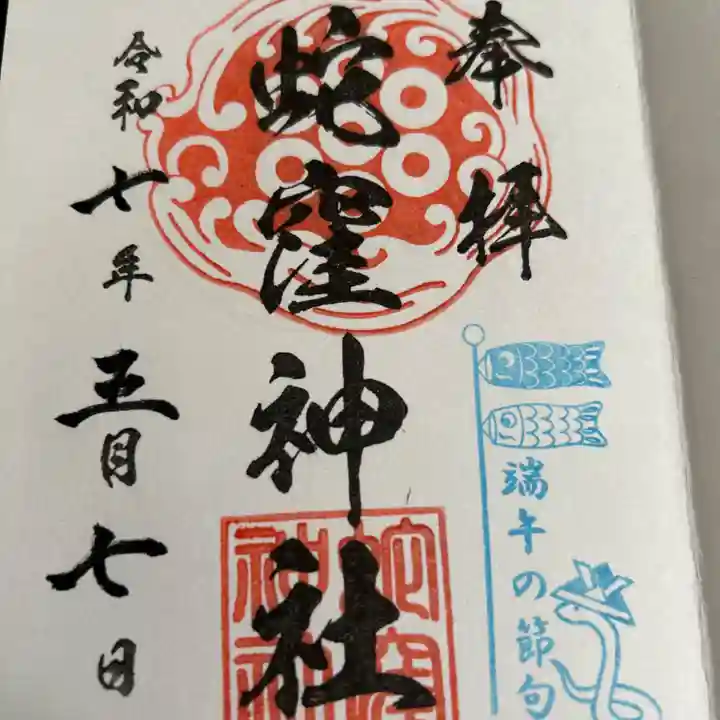 奉拝
蛇窪神社
令和七年五月七日
端午の節句